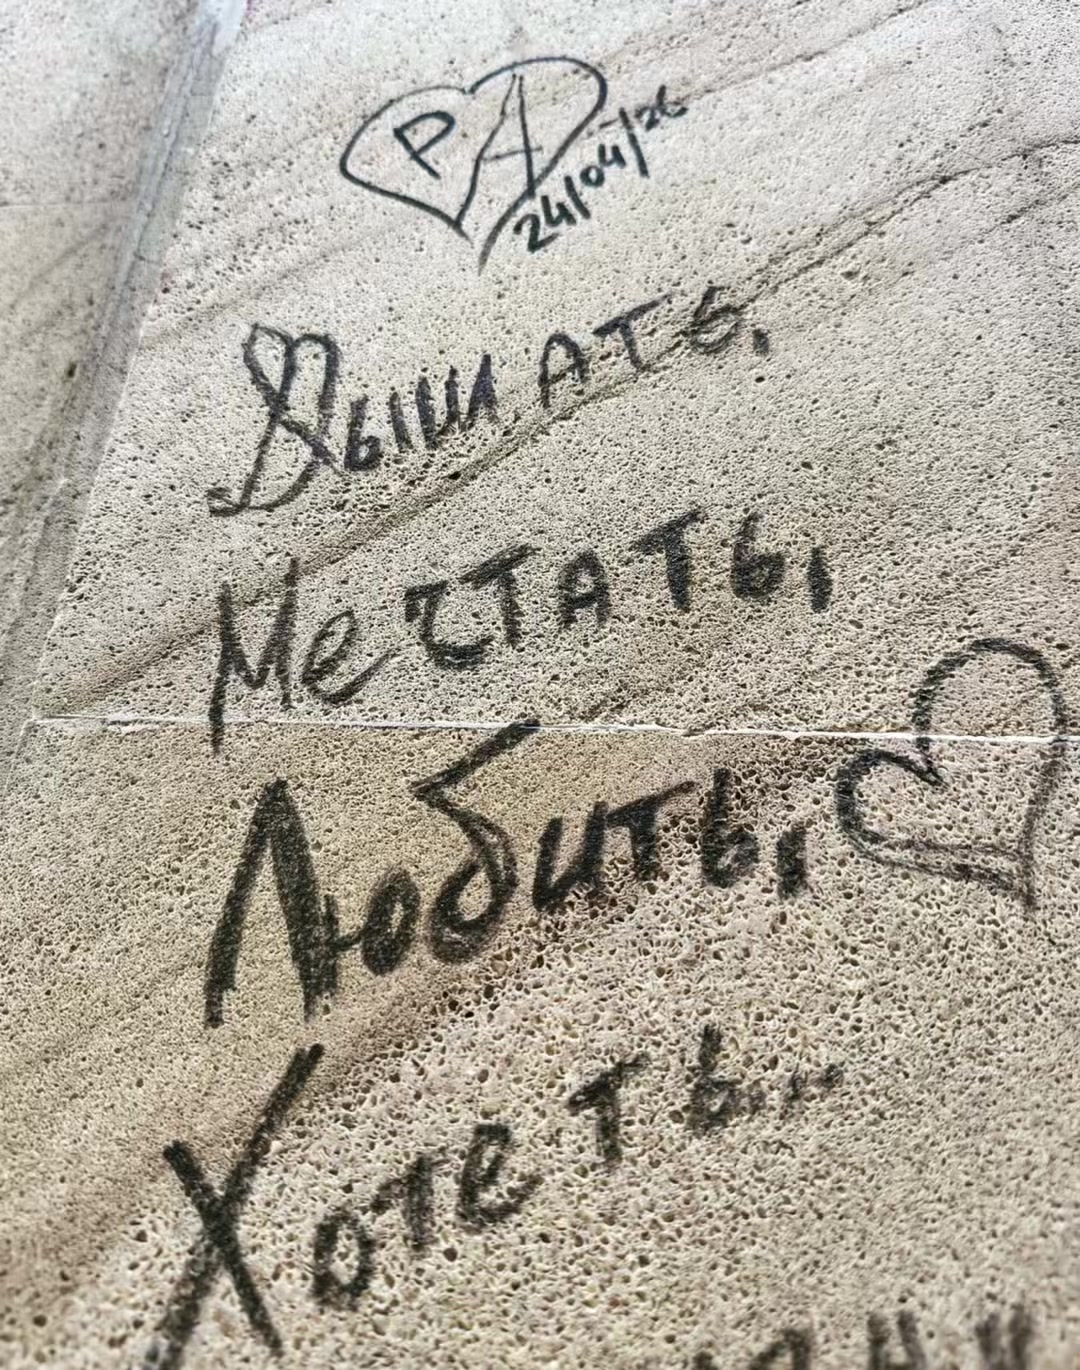 P A
24/04/26
Дышать,
Мечтать,
Любить,
Хотеть...